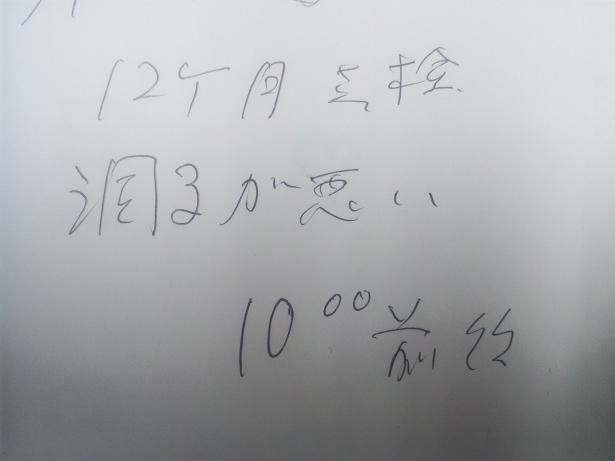 12ケ月点検
調子が悪い
10:00前後